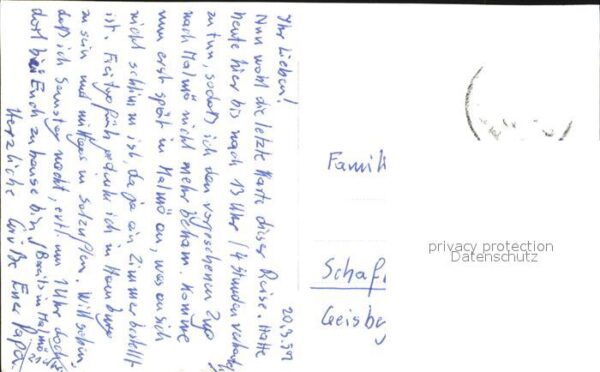 20.3.92
Ihr Lieben!
Nun wohl die letzte Karte dieser Reise. Hatte
heute hier bis nach 13 Uhr (4 Stunden
zu tun, sodaß ich den vorgesehenen Zug
nach Malmö nicht mehr bekam. Komme
nun erst spät in Malmö an, was an sich
nicht schlimm ist, da ja ein Zimmer bestellt
ist. Freitag früh gedenke ich in Hamburg
zu sein und mittags in Salzuflen. Will sehen,
daß ich Samstag nacht, evtl. um 1 Uhr doch
dort bei Euch zu hause bin. (Bereits in Malmö 21
Herzliche Grüße Euer Papa.
Famili
Schaf
Geisbg
privacy protection
Datenschutz